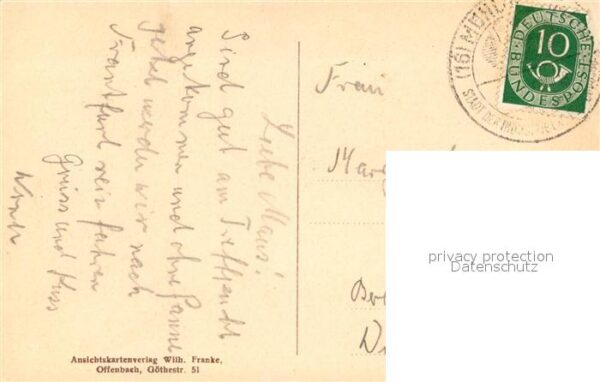 Liebe Maus!
Sind gut am Treffpunkt
angekommen und ohne Panne
jetzt werden wir nach
Frankfurt rein fahren
Gruss und Kuss
Frau
DEUTSCHE
BUNDESPOST
10
(16)
STADT DER
privacy protection
Datenschutz
Ansichtskartenverlag Wilh. Franke,
Offenbach, Göthestr. 51